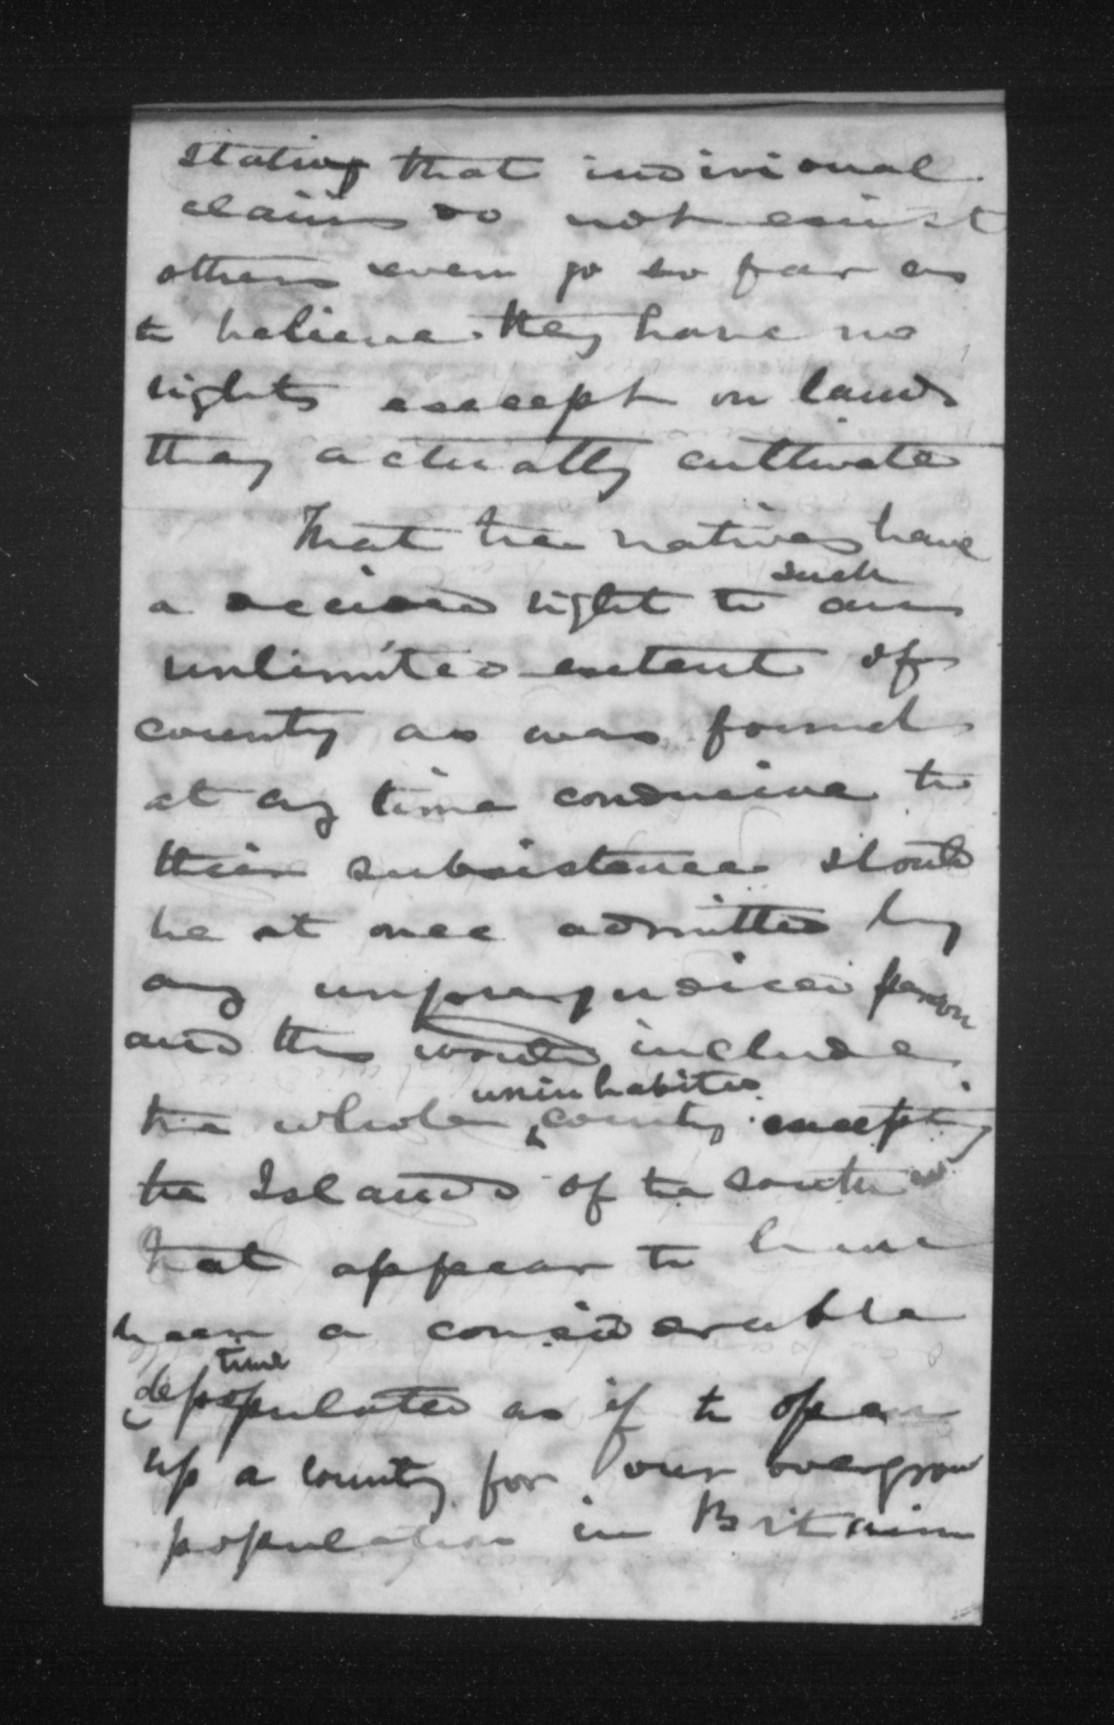 stating that individual
claims do not exist
others even go so far as
to believe they have no
rights except on lands
they actually cultivate
That the natives have
such
a decided right to an
unlimited extent of
county as was found
at any time conducive to
their subsistence should
be at once admitted by
any unprejudiced person
and this would include
uninhabited
the whole county except
the Islands of the south
that appear to have
been a considerable
time
depopulated as if to open
up a county for our overgrow
population in Britain